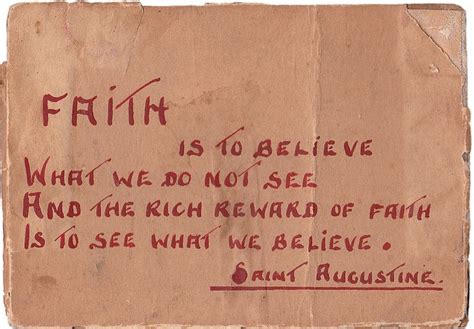 FAITH
IS TO BELIEVE
WHAT WE DO NOT SEE
AND THE RICH REWARD OF FAITH
IS TO SEE WHAT WE BELIEVE.
SAINT AUGUSTINE.